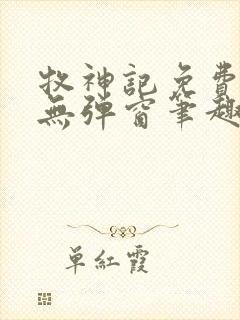 牧神記免費
無彈窗筆趣
单紅霞